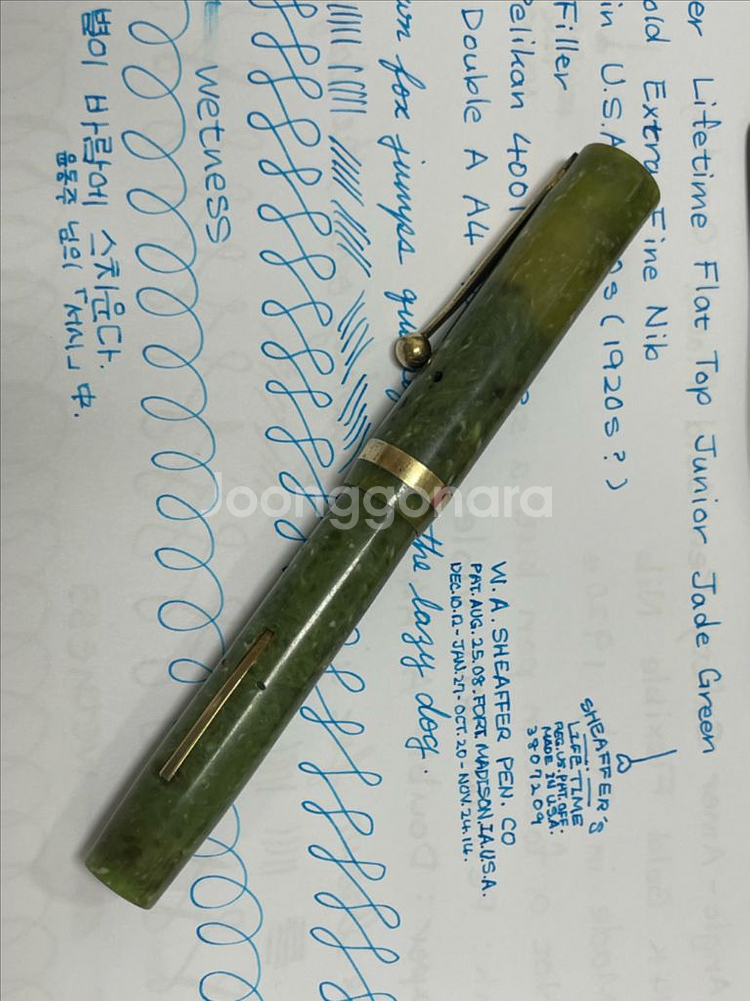 er Lifetime Flat Top Junior Jade Green
old Extra Fine Nib
in U.S.A s (1920s?)
Filler
Pelikan 4001
Double A A4
SHEAFFER'S
LIFETIME
REG.U.S.PAT.OFF.
MADE IN U.S.A.
3807209
W.A. SHEAFFER PEN. CO
PAT.AUG.25.08.FORT.MADISON,IA.U.S.A.
DEC.10.12-JAN.27-OCT.20-NOV.24.14.
fox jumps the lazy dog.
wetness
별이 바람에 스치운다.
윤동주 님의 「서시」 中.
Joonggonara